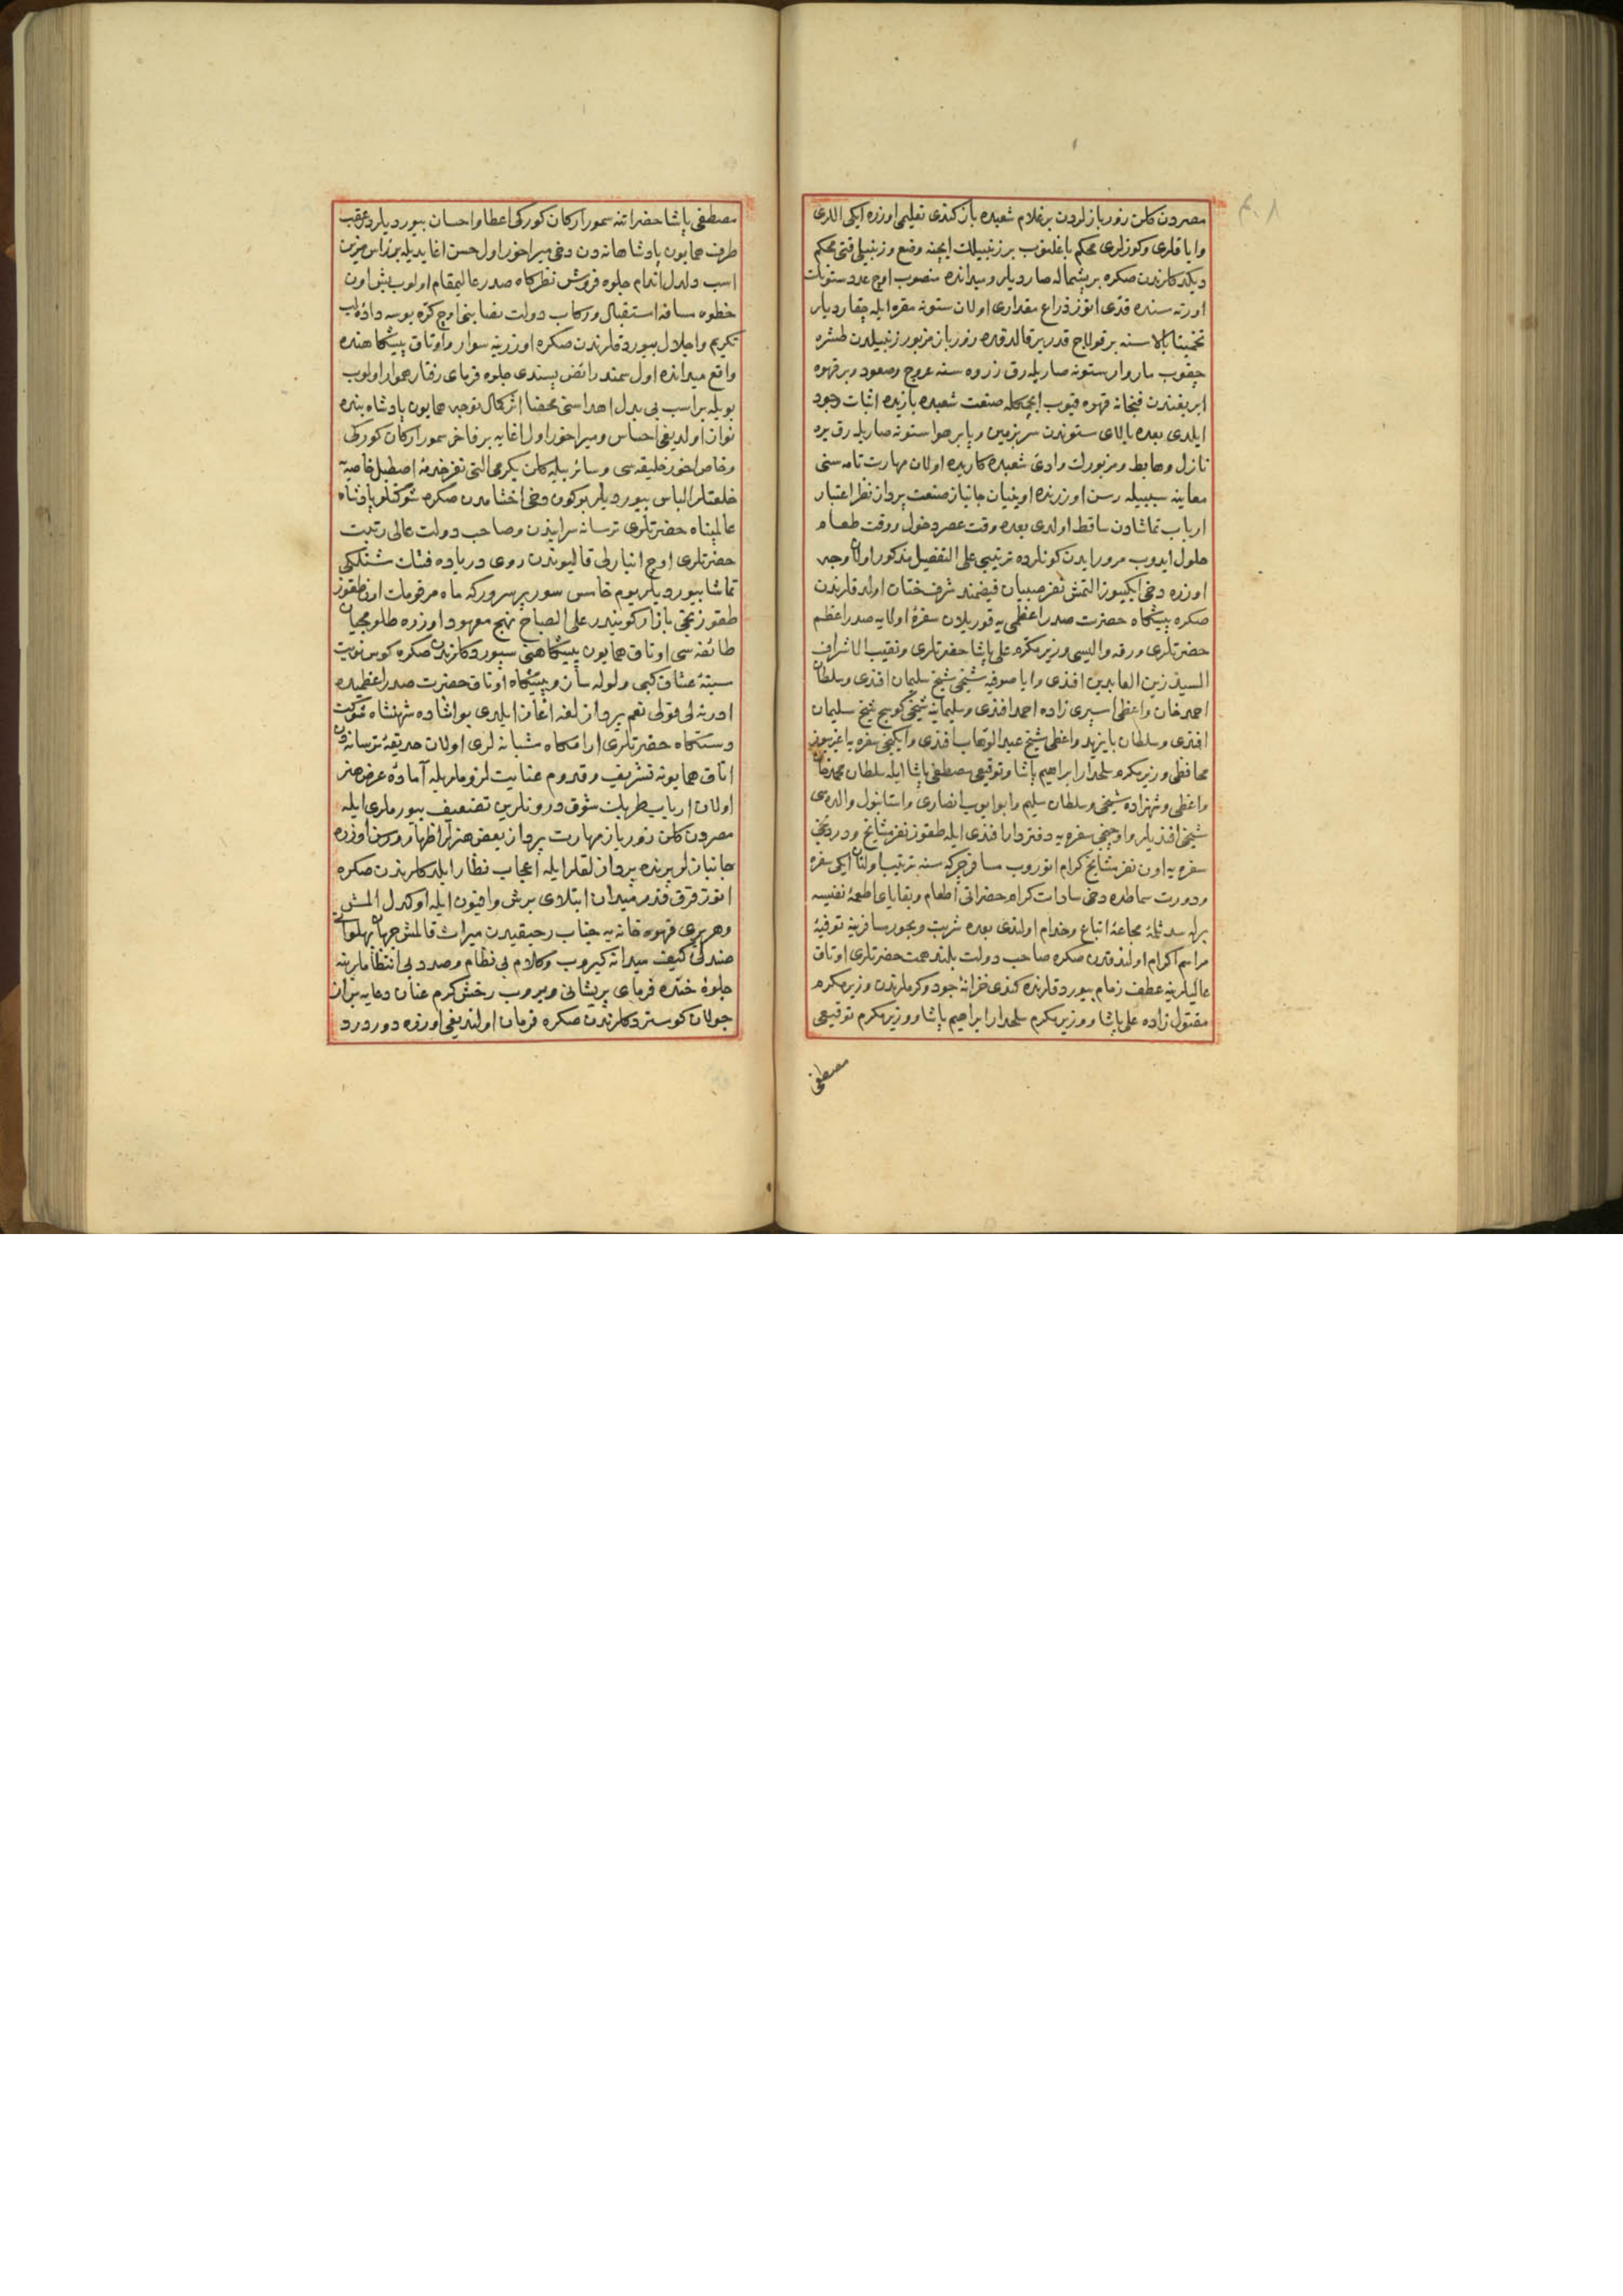 مصردن كلن زور بازلردن بر غلام شعبده باز كندى تعليمى اوزره ايكى اللرى
واياقلرى وكوزلرى محكم باغلنوب بر زنبيلك ايچنه وضع و زنبيلى قتى محكم
ديكدكلرندن صكره بر پشتماله صارديلر و ميدانده منصوب اوچ عدد ستونك
اورته سنده قدى اوتوز ذراع مقدارى اولان ستونه مقره ايله چقارديلر
تخمينا بالاسنه بر قولاج قدر ير قالدقده زور باز مزبور زنبيلدن طشره
چيقوب مار وار ستونه صاريله رق ذروه سنه عروج وصعود وبر قهوه
ابريغندن فنجانه قهوه قيوب ايچمكله صنعت شعبده بازيده اثبات وجود
ايلدى بعده بالاى ستوندن سر بزمين وپا بر هوا ستونه صاريله رق يره
نازل وهابط و مزبورك وادئ شعبده كاريده اولان مهارت تامه سنى
معاينه سببيله رسن اوزرنده اوينيان جانباز صنعت پرداز نظر اعتبار
ارباب تماشادن ساقط اولدى بعده وقت عصر دخول و وقت طعام
حلول ايدوب مرور ايدن كونلرده ترتيبى على التفصيل مذكور اولان وجه
اوزره دخى ايكيوز التمش نفر صبيان فيضمند شرف ختان اولدقلرندن
صكره پيشكاه حضرت صدر اعظمى يه قوريلان سفرهٔ اولايه صدر اعظم
حضرتلرى و رقه واليسى وزير مكرم على پاشا حضرتلرى ونقيب الاشراف
السيد زين العابدين افندى وايا صوفيه شيخى شيخ سليمان افندى وسلطان
احمد خان واعظى اسپرى زاده احمد افندى وسليمانيه شيخى كوسج شيخ سليمان
افندى وسلطان بايزيد واعظى شيخ عبد الوهاب افندى وايكنجى سفره يه اغريبوز
محافظى وزير مكرم سلحدار ابراهيم پاشا وتوقيعى مصطفى پاشا ايله سلطان محمد خان
واعظى وشهزاده شيخى وسلطان سليم وابو ايوب انصارى واستانبول والده سى
شيخى افنديلر واوچنجى سفره يه دفتردار افندى ايله طقوز نفر مشايخ ودردنجى
سفره يه اون نفر مشايخ كرام اتوروب مسافر چركه سنه ترتيب اولنان ايكى سفره
ودورت سماطده دخى سادات كرام حضراتى اطعام وبقاياى اطعمهٔ نفيسه
برله سد ثلمهٔ مجاعهٔ اتباع وخدام اولندى بعده شربت وبخور مسافرينه توفيهٔ
مراسم اكرام اولندقدن صكره صاحب دولت بلند همت حضرتلرى اوتاق
عاليلرينه عطف زمام بيوردقلرنده كندى خزانهٔ جود وكرملرندن وزير مكرم
مقتول زاده على پاشا و وزير مكرم سلحدار ابراهيم پاشا و وزير مكرم توقيعى
مصطفى
مصطفى پاشا حضراتنه سمور اركان كوركى اعطا و احسان بيورديلر در عقب
طرف همايون پادشاهانه دن دخى مير اخور اول حسن اغا يديله بر راس مزين
اسب دلدل اندام جلوه فروش نظركاه صدر عاليمقام اولوب بش اون
خطوه مسافه استقبال وركاب دولت نصابنى اوچ كره بوسه دادهٔ لب
تكريم واجلال بيوردقلرندن صكره اوزرينه سوار واوتاق پيشكاهنده
واقع ميدانده اول سمند رائض پسندى جلوه فرماى رفتار هموار اولوب
بويله بر اسب بى بدل اهداسنى محضا اثر كمال توجه همايون پادشاه بنده
نواز اولديغى احساس ومير اخور اول اغايه بر فاخر سمور اركان كوركى
وخاص اخور خليفه سى وسائر بيله كلن يكرمى التى نفر خدمهٔ اصطبل خاصيه
خلعتلر الباس بيورديلر بو كون دخى اخشامدن صكره شوكتلو پادشاه
عالمپناه حضرتلرى ترسانه سرايندن وصاحب دولت عالى رتبت
حضرتلرى اوچ انبارلى قاليوندن روى درياده فشنك شنلكى
تماشا بيورديلر يوم خامس سور پر سرور كه ماه مرقومك اون طقوز
طقوزنجى بازار كونيدر على الصباح نهج معهود اوزره طلومبجيان
طائفه سى اوتاق همايون پيشكاهنى سپوردكلرندن صكره كوس نوبت
سينهٔ عشاق كبى ولوله سان وپيشكاه اوتاق حضرت صدر اعظميده
ادرنه لى قولى نغم پرداز لغه اغاز ايلدى بو اثناده شهنشاه شوكت
دستكاه حضرتلرى ارامكاه شبانه لرى اولان حديقهٔ ترسانه دن
اتاق همايونه تشريف وقدوم عنايت لزوملريله آمادهٔ عرض هنر
اولان ارباب طربك شوق درونلرين تضعيف بيورملرى ايله
مصردن كلن زور باز مهارت پرداز بعض هنرلر اظهار و رسن اوزره
جانباز لوبرنده پرداز لقلر ايله اعجاب نظار ايلدكلرندن صكره
اتوز قرق قدر ميدان ابتلاى برش وافيون ايله اوكدل المش
وهر برى قهوه خانه يه جناب رحيقيدن ميراث قالمش جهان پهلوانى
صندلى كثيف ميدانه كيروب وكلام بى نظام وصدد بى انتظاملرينه
جلوهٔ خنده فرماى پريشانى ويروب رخش كرم عنان دعايه بر ان
جولان كوستردكلرندن صكره فرمان اولنديغى اوزره دور درد